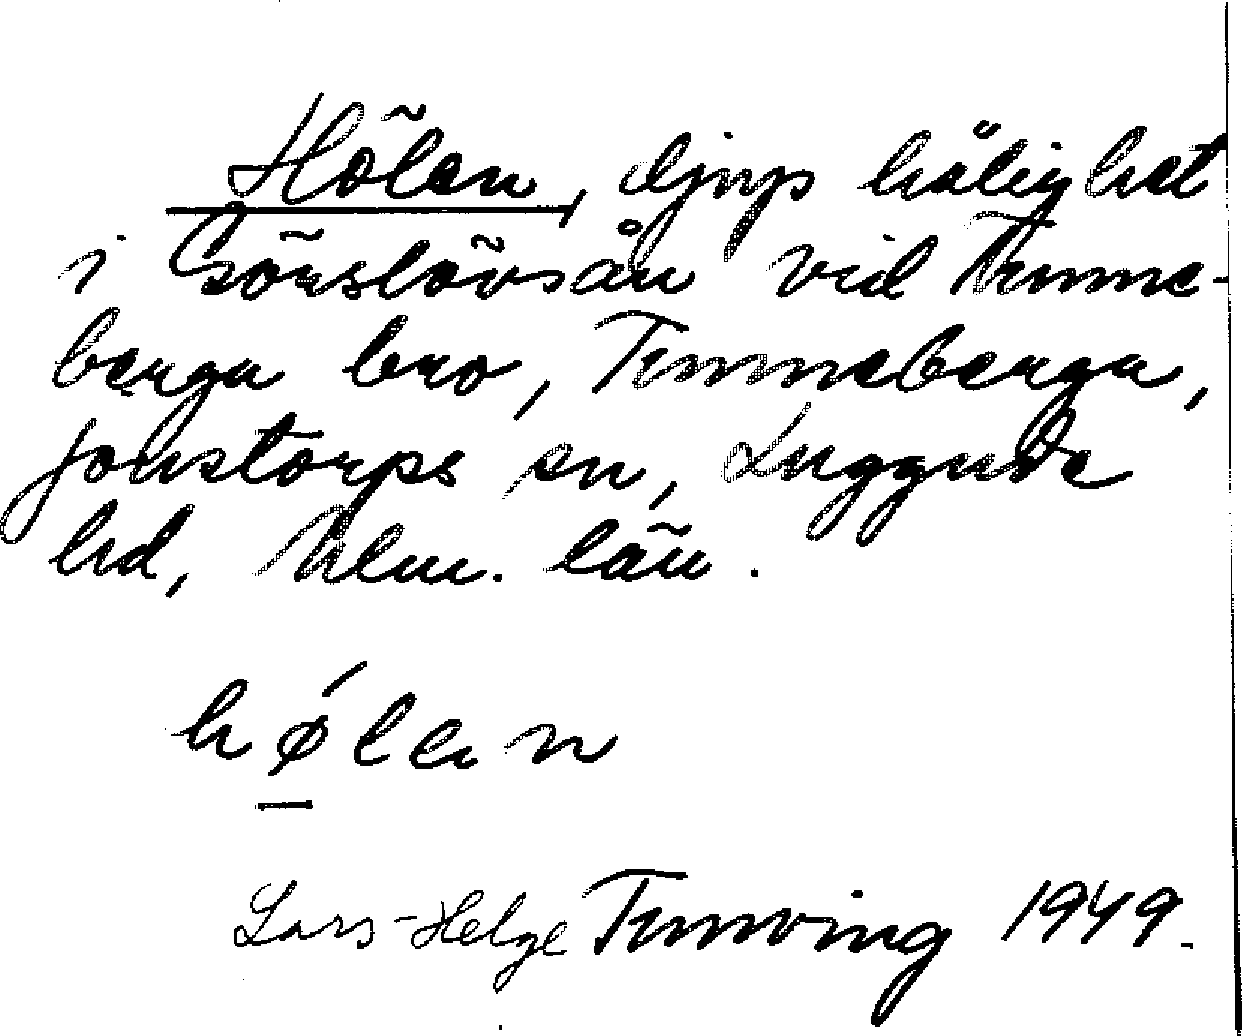 Hölen, djup hålighet
i Görslövsån vid Tunne-
berga bro, Tunneberga,
Jonstorps sn, Luggude
hd, Mlm. län.
hǿlen
Lars-Helge Tunving 1949.